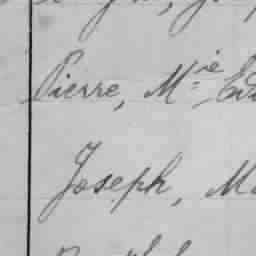 Pierre, M.ie
Joseph, M